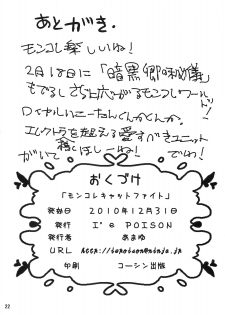 あとがき.
モンコレ楽しいね!
2月18日に「暗黒郷の秘儀」
もでるしさらに広がるモンコレワールド!
ロイヤルハニーたんくんかくんか。
エレクトラを超える愛すべきユニット
がいて 程ほしーね! でわ!
おくづけ
「モンコレキャットファイト」
発効日 2010年12月31日
発行 I'm POISON
発行者 あまゆ
URL http://impoison@ninja.jp
印刷 コーシン出版
22